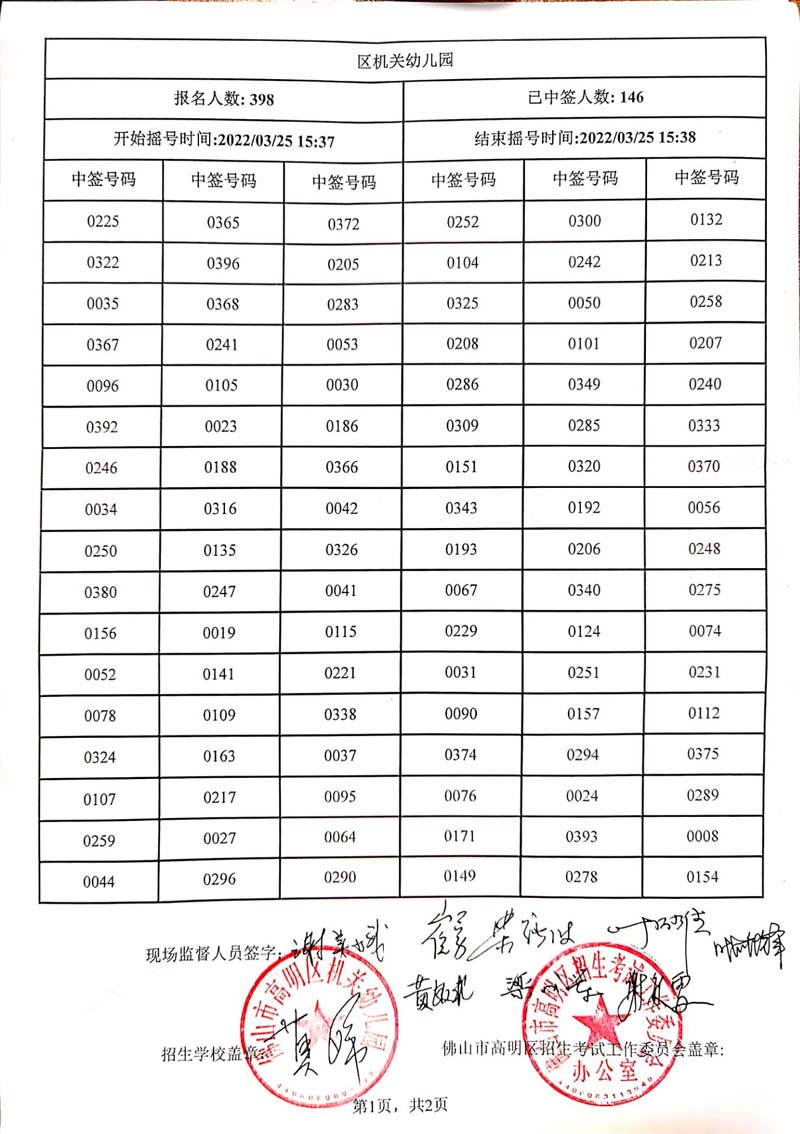 区机关幼儿园
报名人数: 398 已中签人数: 146
开始摇号时间:2022/03/25 15:37 结束摇号时间:2022/03/25 15:38
中签号码 中签号码 中签号码 中签号码 中签号码 中签号码
0225 0365 0372 0252 0300 0132
0322 0396 0205 0104 0242 0213
0035 0368 0283 0325 0050 0258
0367 0241 0053 0208 0101 0207
0096 0105 0030 0286 0349 0240
0392 0023 0186 0309 0285 0333
0246 0188 0366 0151 0320 0370
0034 0316 0042 0343 0192 0056
0250 0135 0326 0193 0206 0248
0380 0247 0041 0067 0340 0275
0156 0019 0115 0229 0124 0074
0052 0141 0221 0031 0251 0231
0078 0109 0338 0090 0157 0112
0324 0163 0037 0374 0294 0375
0107 0217 0095 0076 0024 0289
0259 0027 0064 0171 0393 0008
0044 0296 0290 0149 0278 0154
现场监督人员签字:
佛山市高明区机关幼儿园
招生学校盖章:
佛山市高明区招生考试工作委员会盖章:
办公室
第1页，共2页